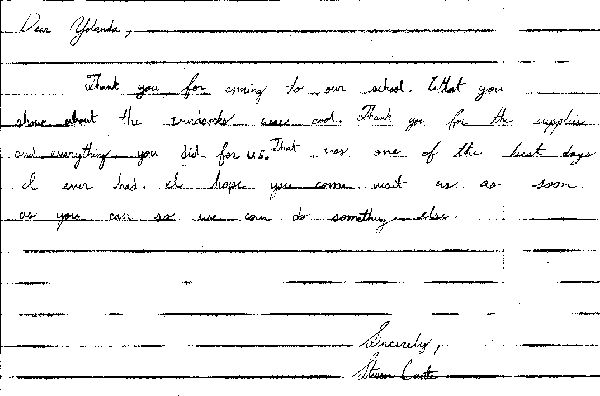 Dear Yolanda,
Thank you for coming to our school. What you
show about the windsocks were cool. Thank you for the supplies
and everything you did for us. That was one of the best days
I ever had. I hope you come visit us as soon
as you can so we can do something else.
Sincerely,
Steven